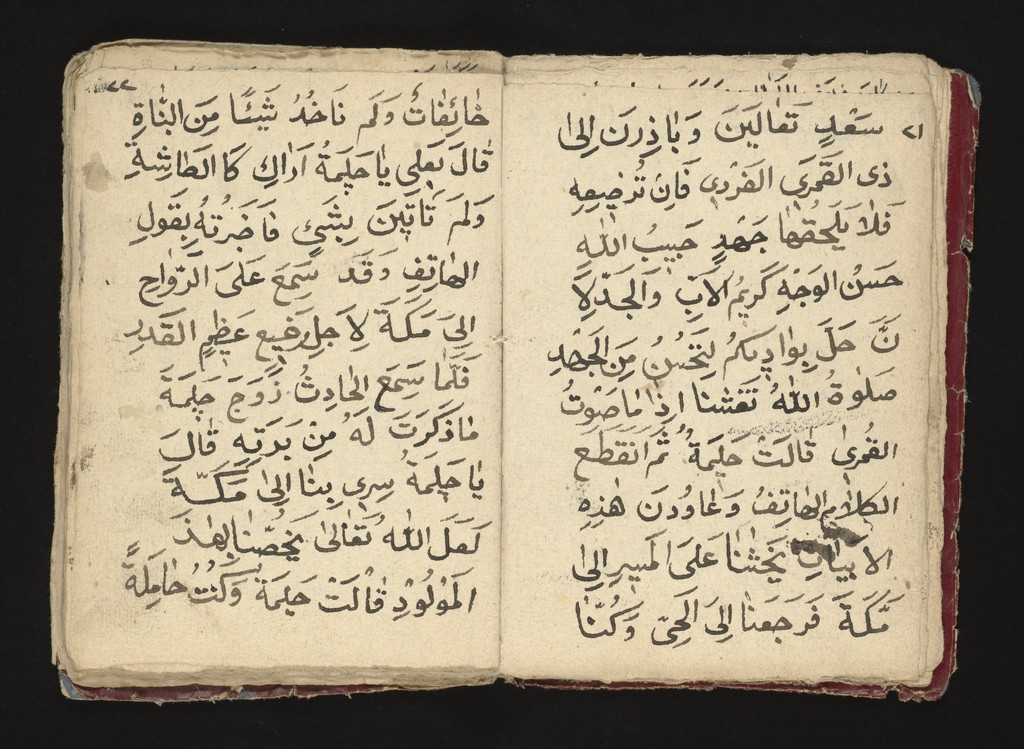 ٢١
سَعْدٍ تَعَالَيْنَ وَبَاذِرْنَ اِلىٰ
ذى القَمَرِي الفَرْدِي فَاِنْ تُرْضِيعِهِ
فَلَا يَلْحَقُهَا جَهْدٍ حَبِيبُ اللّٰه
حَسَنُ الوَجْهِ كَرِيْمُ الاَبِ وَالْجَدِّ لَا
نَّ حَلَّ بِوَادِيكُمُ مِنَ الْجَهْدِ
صَلٰوةُ اللّٰهُ تَغَشْنَا اِذَا مَا صَوْتُ
القُمْرِى قَالَتْ حَلِيمَةُ ثُمَّ انْقَطَعَ
الكَلَامُ الهَاتِفُ وَعَاوُدَنَ هٰذِهِ
الابْيَاتِ يَحِثُّنَا عَلَى المَسِيرِ اِلىٰ
مَكَّةَ فَرَجَعْنَا اِلَى الْحَىِّ وَكُنَّا
٢٢
خَائِفَاتٌ وَلَمْ نَاخُذُ شَيْئًا مِنَ النَّبَاةِ
قَالَ بَعْلِى يَا حَلِيمَةُ اَرَاكِ كَا الطَائِشَةِ
وَلَمْ تَاتِيْنَ بِشَيْءٍ فَاخْبَرْتُهُ بِقَوْلِ
الهَاتِفِ وَقَدْ سَمِعَ عَلىَ الرَّوَاحِ
اِلىَ مَكَّةَ لِاَجْلِ رَضِيعٍ عَظِمِ القَدْرِ
فَلَمَّا سَمِعَ الحَادِثُ زَوْجَ حَلِيمَةَ
مَا ذَكَرَتْ لَهُ مِنْ بَدَتِهِ قَالَ
يَا حَلِيمَةُ سِرِى بِنَا اِلىٰ مَكَّةَ
لَعَلَ اللّٰهُ تَعَالىٰ يَخُصَّنَا بِهٰذَ
المَوْلُودِ قَالَتْ حَلِيمَةُ وَكُنْتُ حَامِلَةً